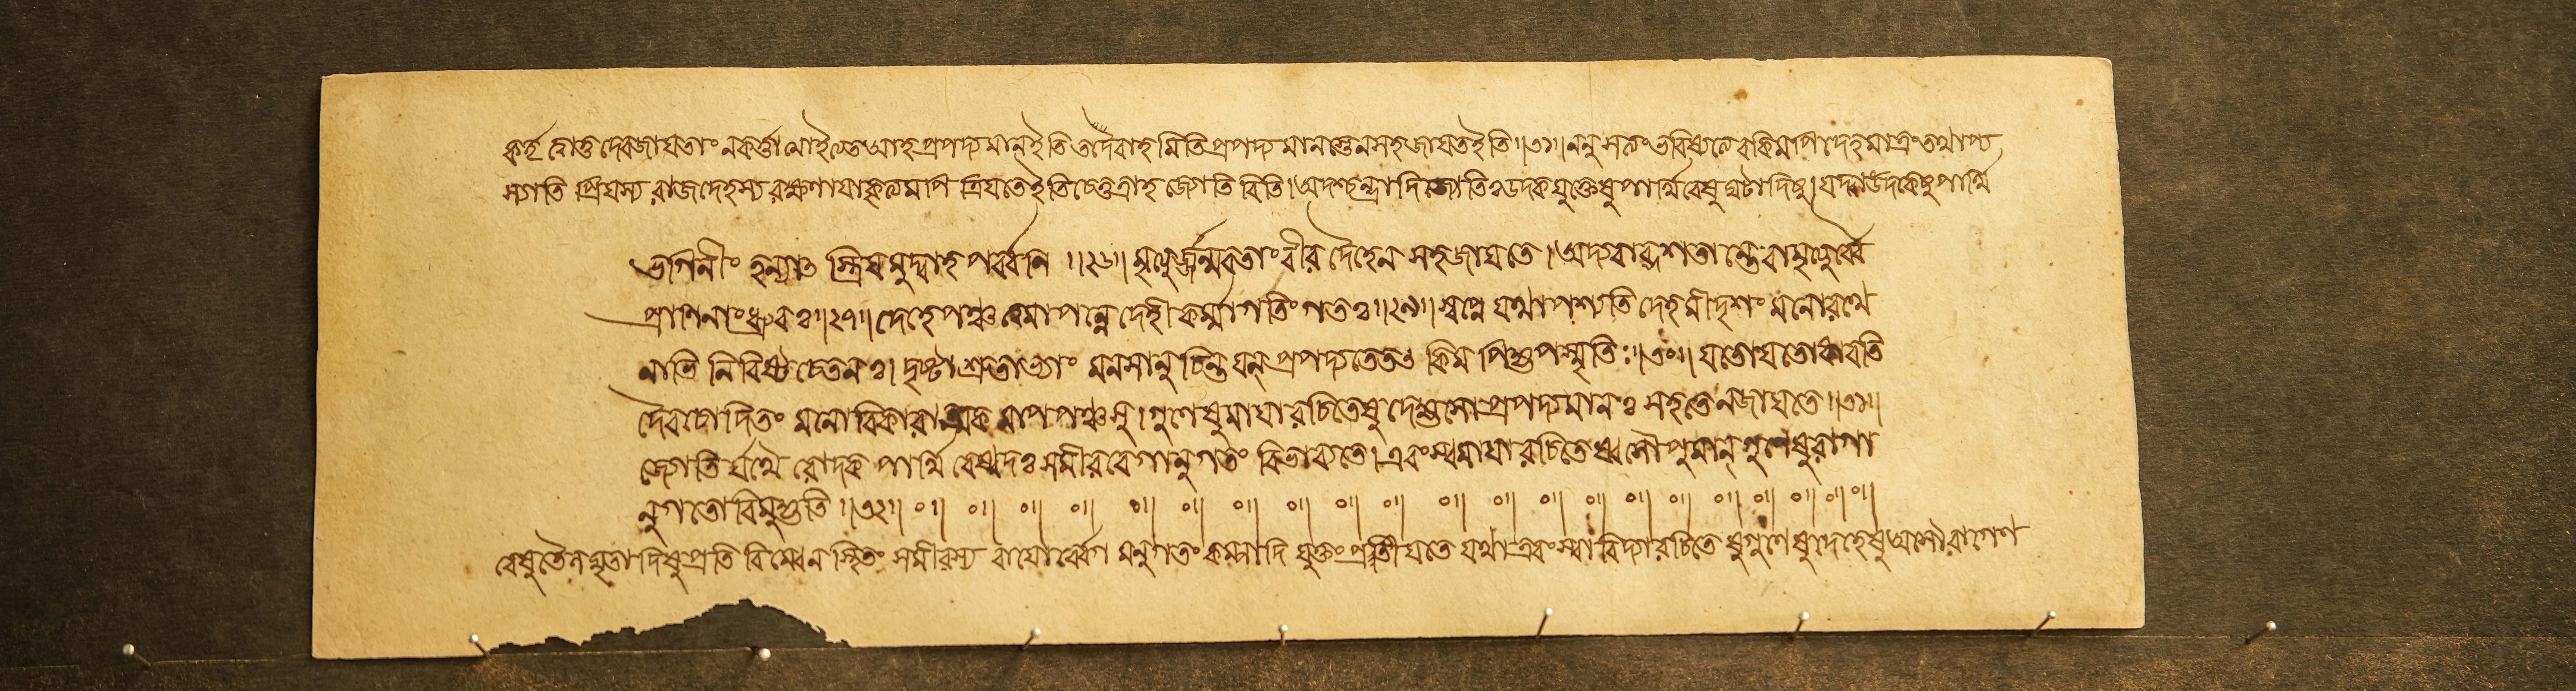 কর্তৃত্বাত্তদেবজায়তাং নকর্ত্তামোইত্যত আহ প্রপদ্যমানইতি তদৈবাহমিতিপ্রপদ্যমানস্তেনসহজায়তইতি॥৩১॥ননু সত্যংভবিষ্যত্যেবকিমপিদেহমাত্রংতথাপ্য
স্যগতি প্রিয়স্য রাজদেহস্যরক্ষণায়াকৃত্যমপি ক্রিয়তেইতিচেত্তত্রাহ জ্যোতিরিতি।অদশ্চন্দ্রাদিজ্যোতিঃউদকযুক্তেষুপার্থিবেষুঘটাদিষু।যদ্বাউদকেষুপার্থি
ভগিনীং হন্যাৎ স্ত্রিয়মুদ্বাহপর্ব্বণি ॥২৬॥ মৃত্যুর্জন্মবতাংবীর দেহেন সহজায়তে।অদ্যবাব্দশতান্তেবামৃত্যুর্ব্বৈ
প্রাণিনাংধ্রুবঃ॥২৭॥দেহেপঞ্চত্বমাপন্নে দেহী কর্ম্মাগতিংগতঃ॥২৯॥স্বপ্নে যথাপশ্যতি দেহমীদৃশং মনোরথে
নাভি নিবিষ্টচেতনঃ। দৃষ্টাশ্রুতাভ্যাং মনসানুচিন্তয়ন্ প্রপদ্যতেতৎ কিমপিহ্যপস্মৃতিঃ॥৩০॥ যতোযতোধাবতি
দৈবচোদিতং মনোবিকারাত্মক মাপপঞ্চসু।গুণেষুমায়ারচিতেষু দেহ্যসৌপ্রপদ্যমানঃ সহতেনজায়তে॥৩১॥
জ্যোতি র্যথৈ বোদক পার্থি বেষ্বদঃ সমীরবেগানুগতং বিভাব্যতে।এবংস্বমায়ারচিতেষ্বসৌপুমান্ গুণেষুরাগা
নুগতোবিমুহ্যতি ॥৩২॥ ০॥ ০॥ ০॥ ০॥ ০॥ ০॥ ০॥ ০॥ ০॥ ০॥ ০॥ ০॥ ০॥ ০॥ ০॥ ০॥ ০॥ ০॥ ০॥ ০॥ ০॥
বেষুতৈলঘৃতাদিষুপ্রতি বিম্বেন স্থিতং সমীরস্য বায়োর্ব্বেগ মনুগতং কম্পাদি যুক্তংপ্রতীয়তে যথাএবংস্বাবিদ্যারচিতে ষুগুণেষুদেহেষুঅসৌরাগেণ